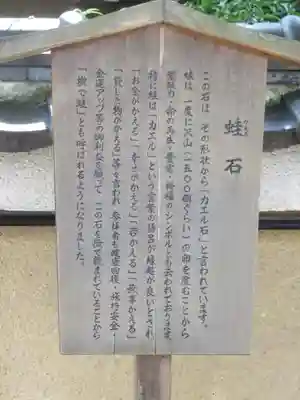 蛙石
この石は、その形状から「カエル石」と言われています。
蛙は、一度に沢山(一五〇〇個ぐらい)の卵を産むことから
命の再生・豊富・裕福のシンボルとも云われております
特に蛙は「カエル」という言葉の語呂が縁起が良いとされ
「お金がかえる」「幸せがかえる」「若かえる」「無事かえる」
「貸した物がかえる」等を言われ、参拝者も健康回復・旅行安全・
金運アップ等の御利益を願って、この石を撫で親まれていることから
「撫で蛙」とも呼ばれるようになりました。